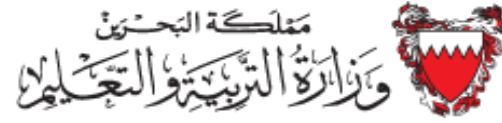 مَمْلَكَة البَحْرَيْن
وَزَارَةُ التَّرْبِيَةِ وَالتَّعْلِيمِ